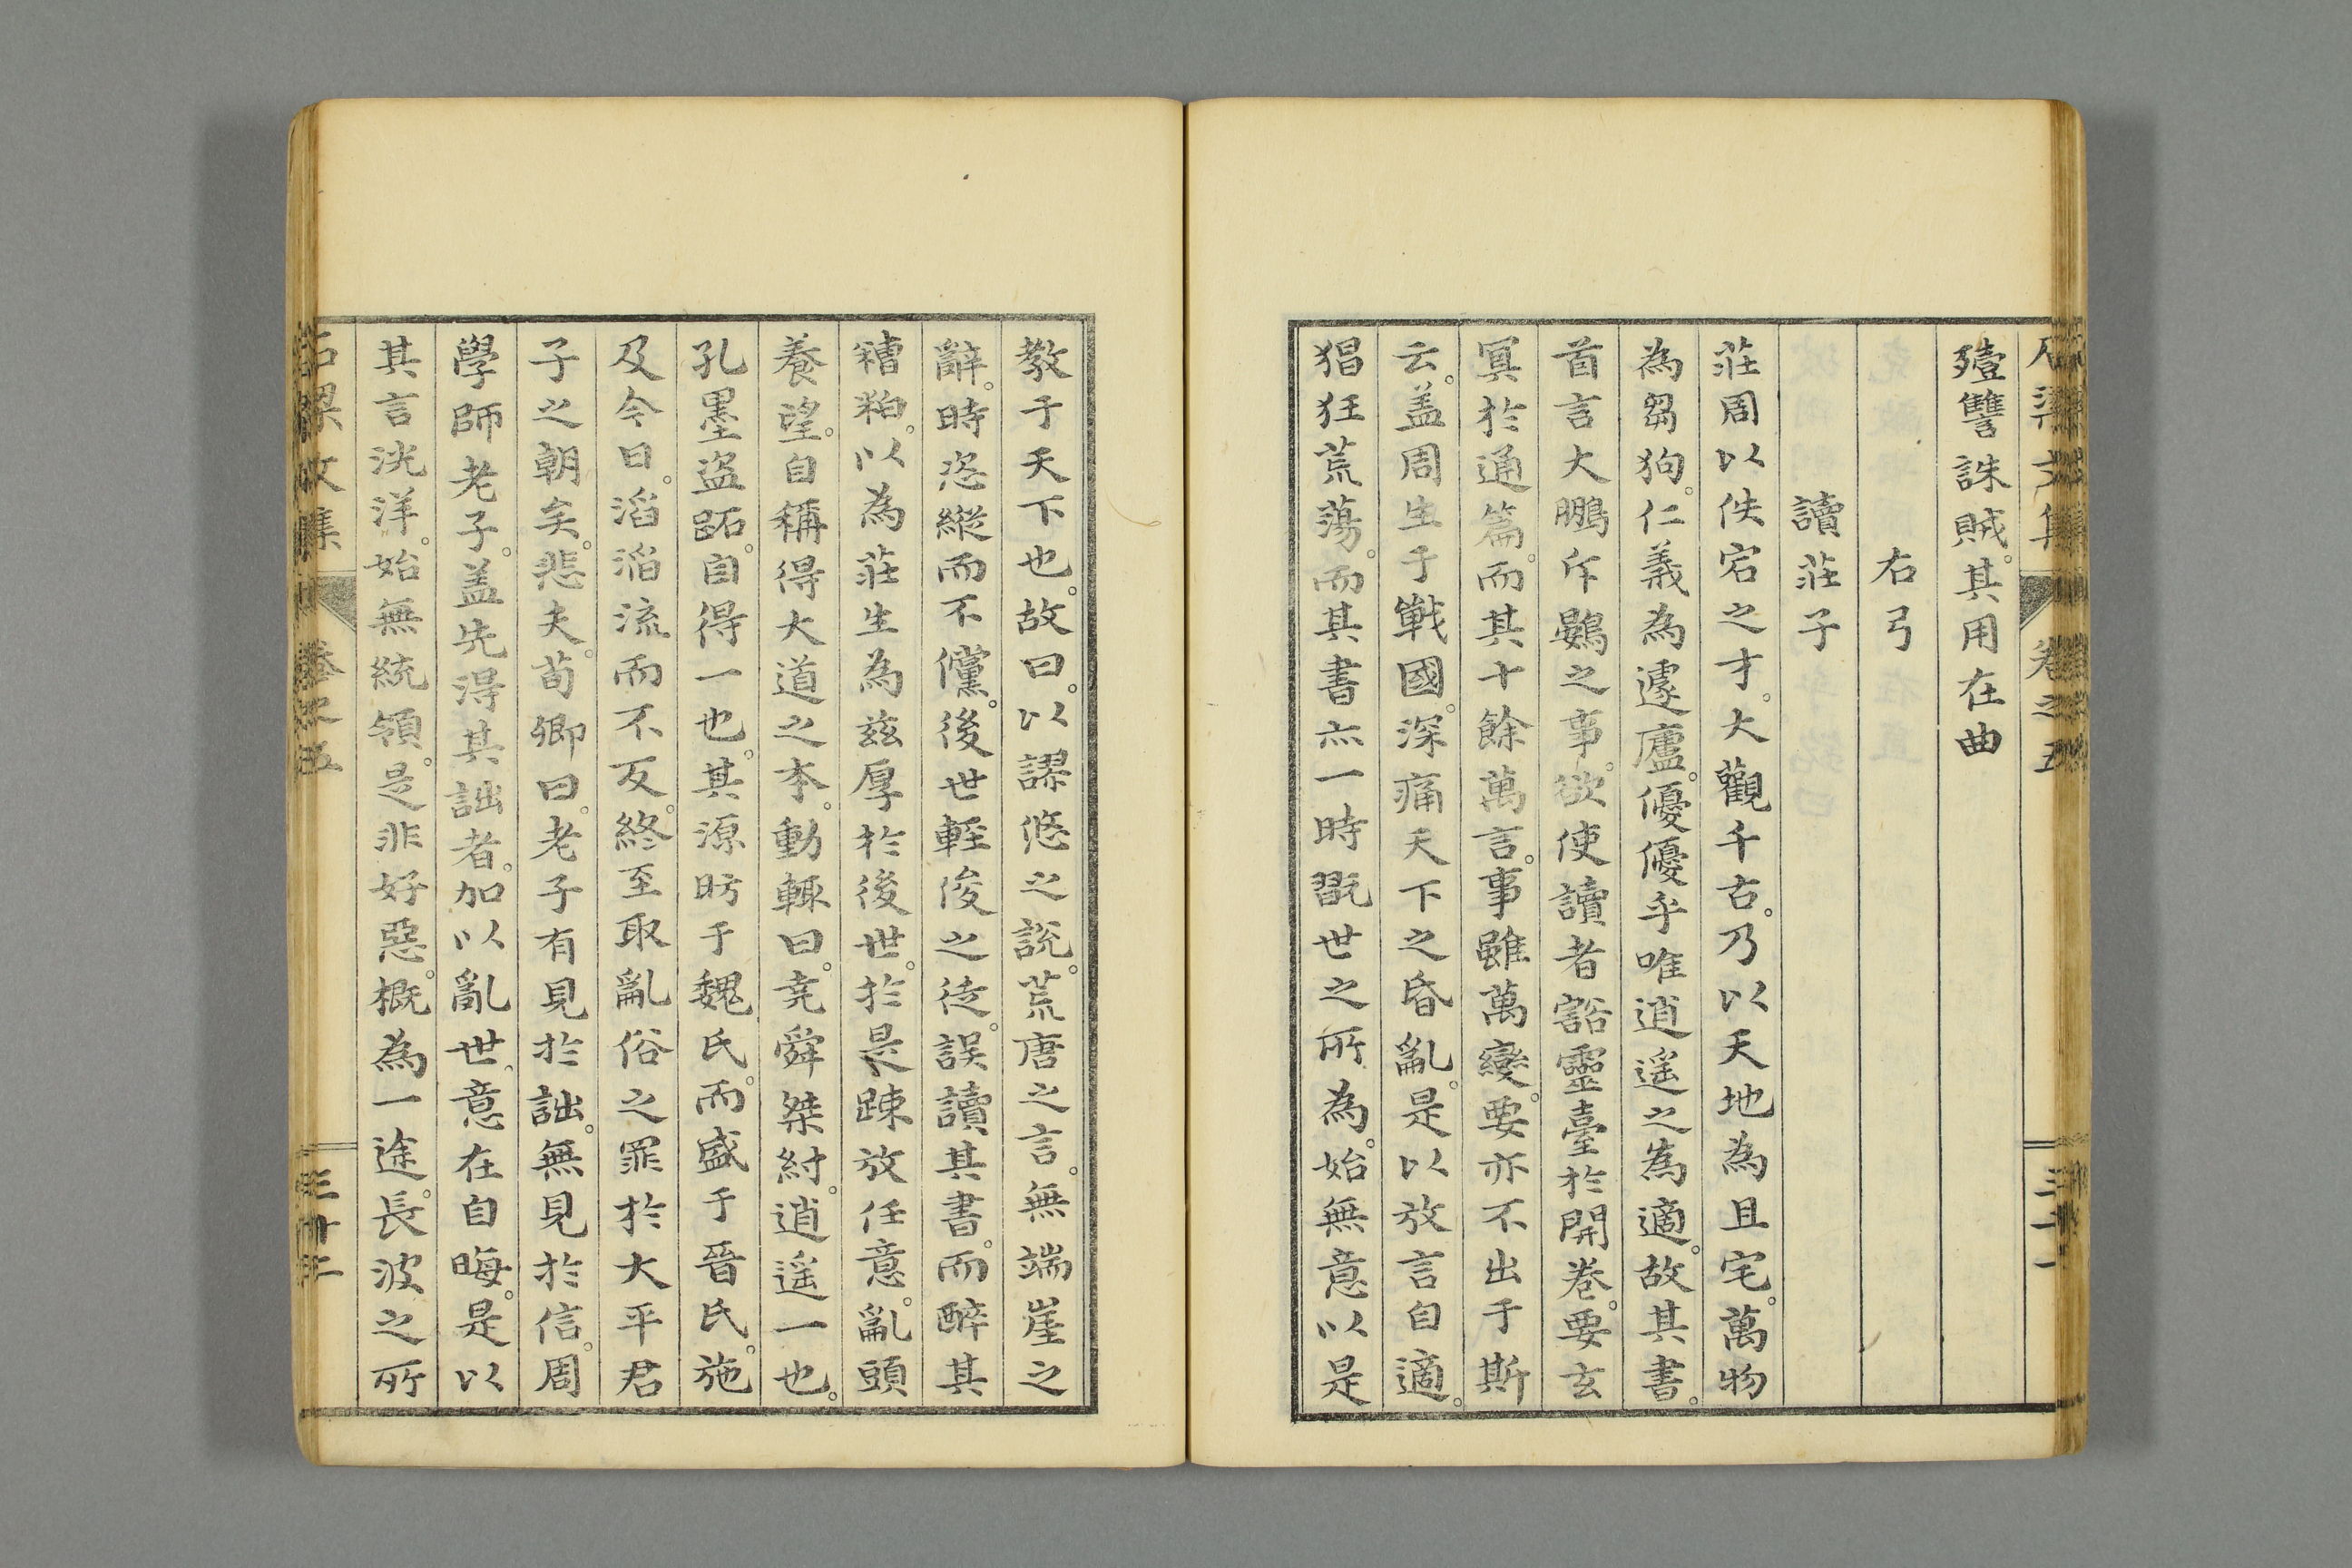 石梁文集 卷之五 三十一
殪讐誅賊。其用在曲
右弓
讀莊子
莊周以佚宕之才。大觀千古。乃以天地為且宅。萬物
為芻狗。仁義為遽廬。優優乎唯逍遥之為適。故其書。
首言大鵬斥鷃之事。欲使讀者豁靈臺於開巻。要玄
冥於通篇。而其十餘萬言。事雖萬變。要亦不出于斯
云。盖周生于戰國。深痛天下之昏亂。是以放言自適。
猖狂荒蕩。而其書亦一時翫世之所為。始無意以是
教于天下也。故曰。以謬悠之説。荒唐之言。無端崖之
辭。時恣縱而不儻。後世輕俊之徒。誤讀其書。而醉其
糟粕。以為莊生為玆厚於後世。於是踈放任意。亂頭
養望。自稱得大道之本。動輙曰。堯舜桀紂。逍遥一也。
孔墨盗跖。自得一也。其源昉于魏氏。而盛于晉氏。施
及今日。滔滔流而不反。終至取亂俗之罪於大平君
子之朝矣。悲夫。荀卿曰。老子有見於詘。無見於信。周
學師老子。盖先得其詘者。加以亂世、意在自晦。是以
其言洸洋。始無統領。是非好惡。概為一途。長波之所
石梁文集 卷之五 三十二